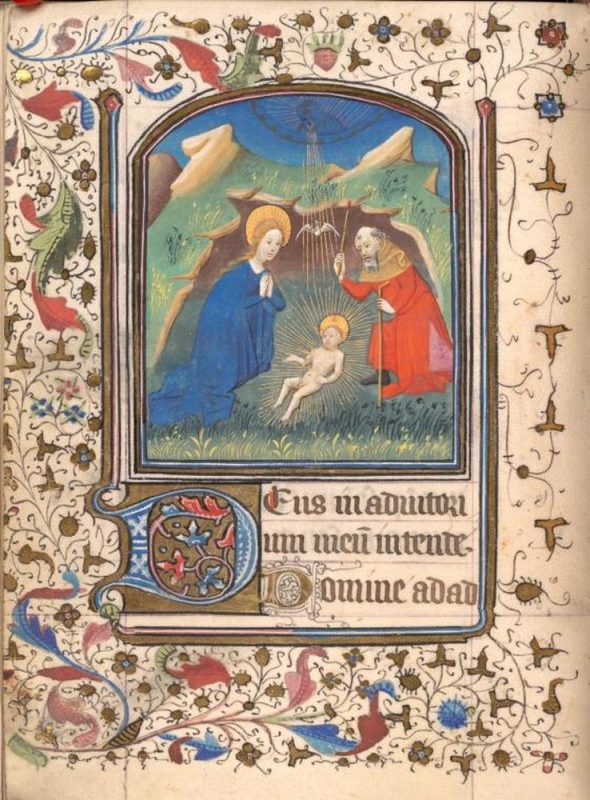 Deus in adiutori
um meū intende.
Domine ad ad